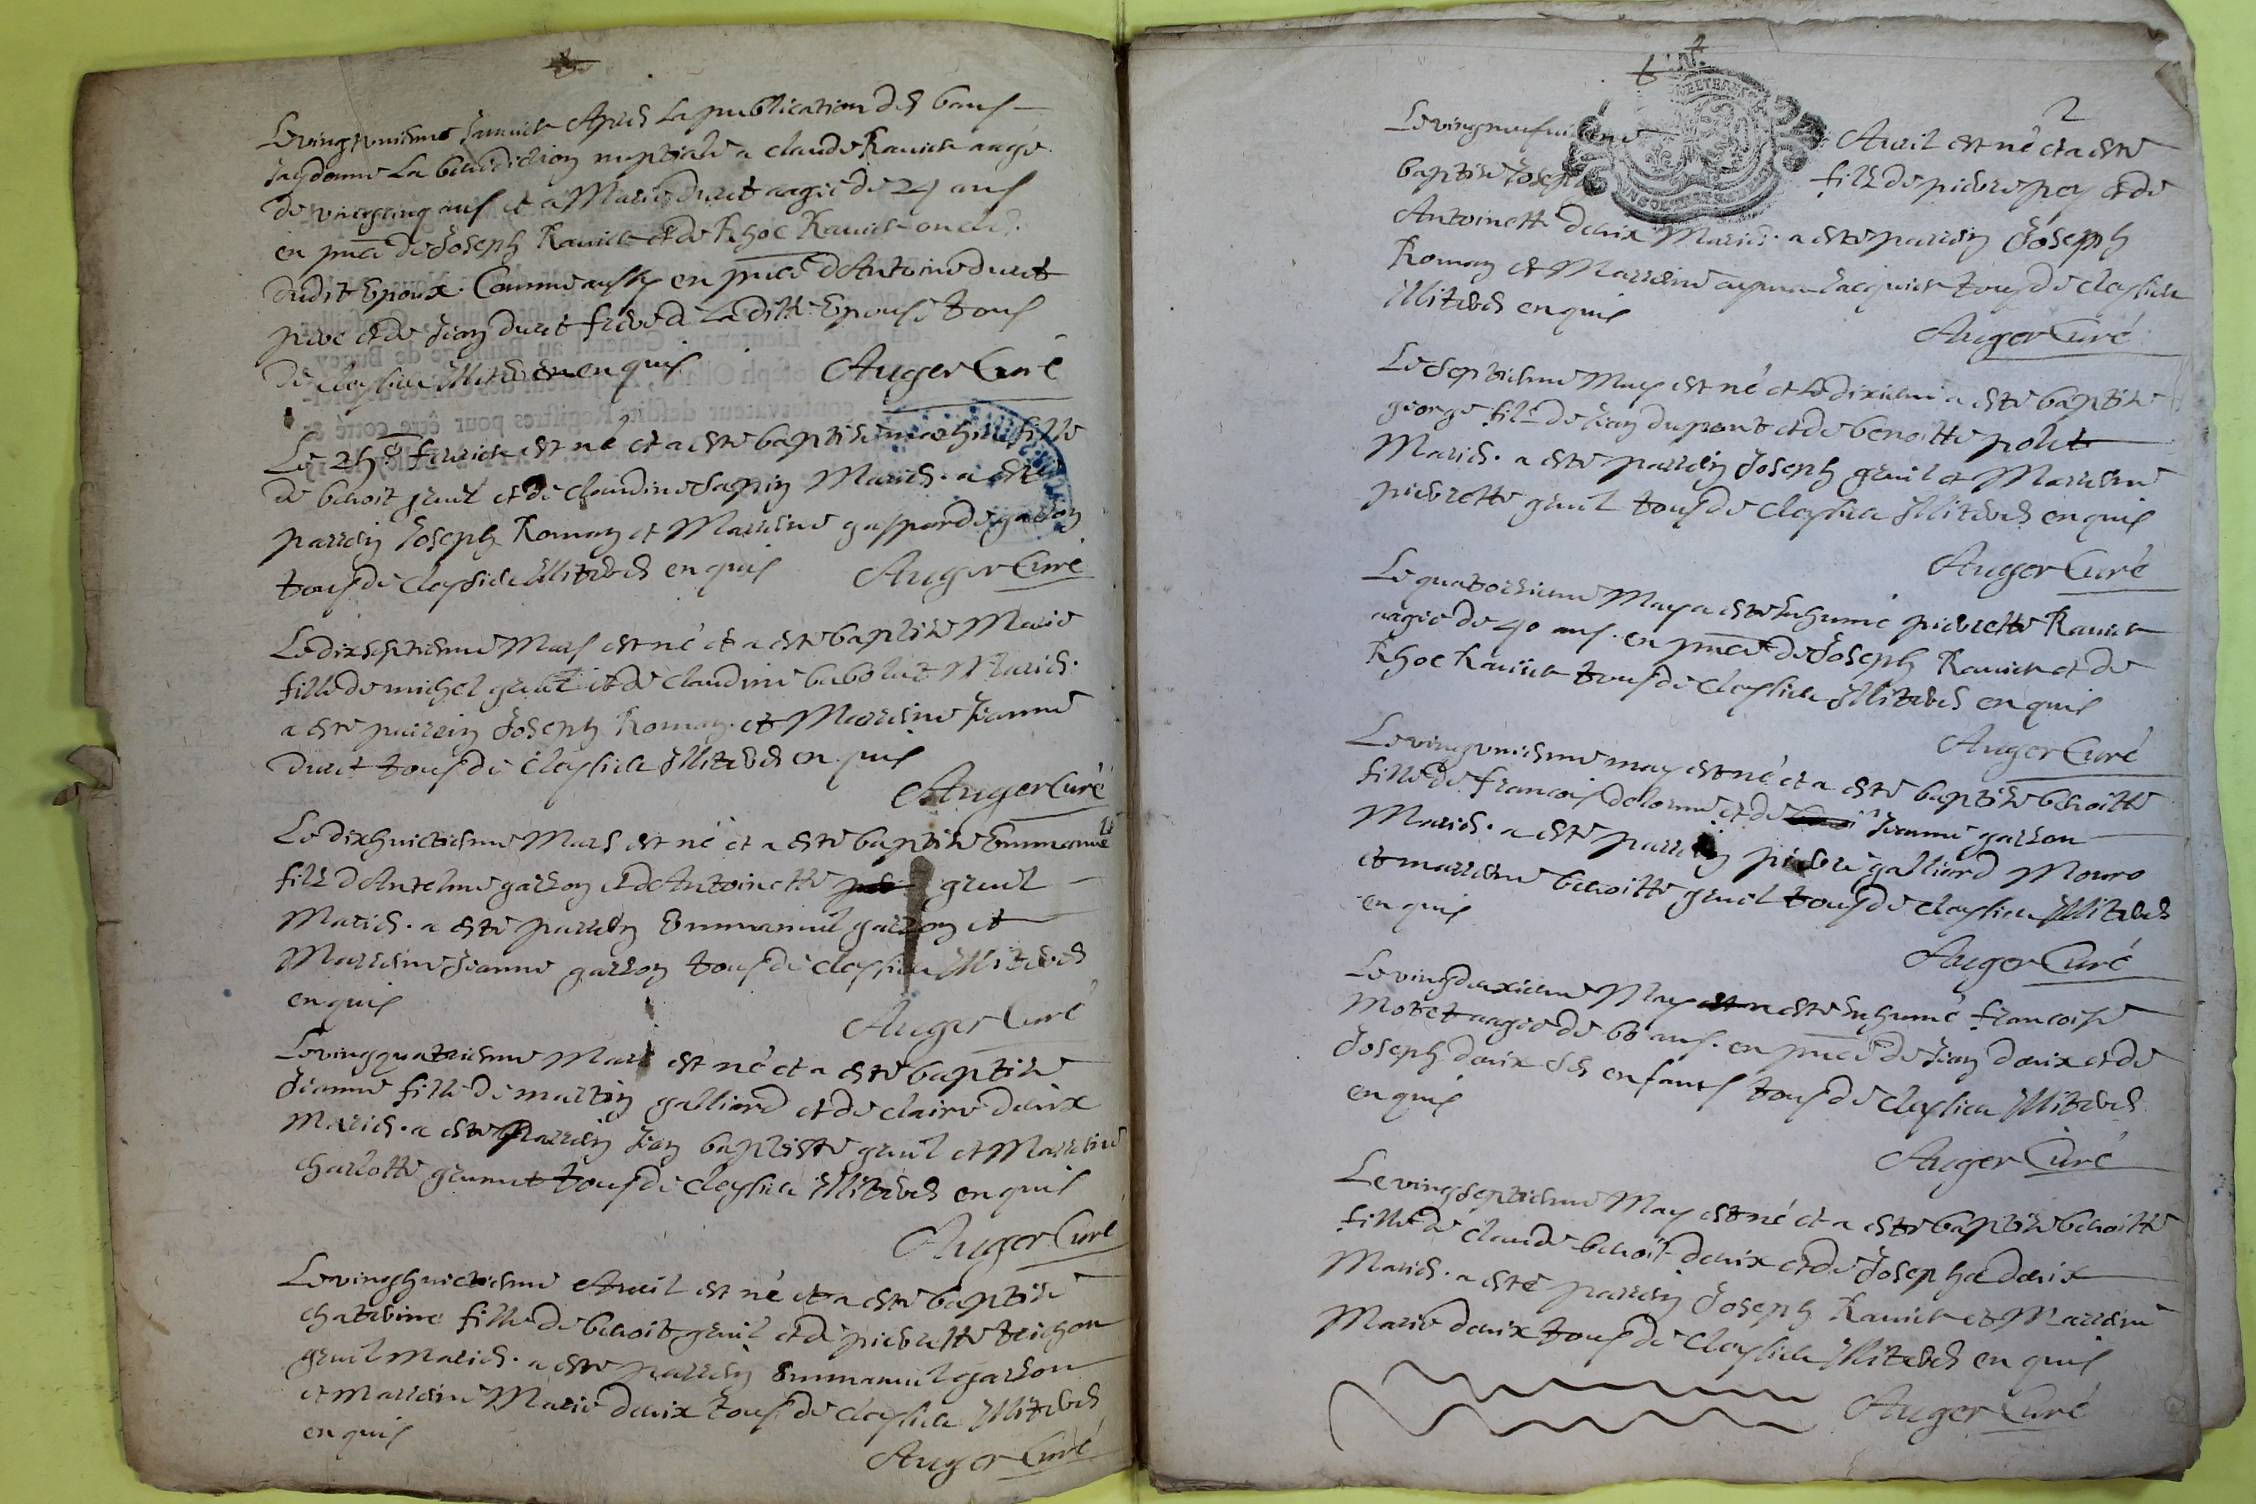 Le vingt uniesme Januier Apres La publication des bans
Jay donne La benediction nuptiale a claude Rauier aagé
de vingcinq ans et a Marie duret aagée de 24 ans
en pnce de Joseph Rauier et de Rhoc Rauier oncle
dudit Epoux. Comme aussy en pnce d'Antoine duret
pere et de Jean duret frere de La ditte Epouse tous
de Cleysieu Illiteres enquis
Auger Curé
Le 25e feurier est né et a esté baptisée fille
de benoit gruel et de Claudine Sapin Mariés. a esté
parrein Joseph Roman et Marreine gasparde garson
tous de Cleysieu Illiteres enquis
Auger Curé
Le dixseptiesme Mars est né et a esté baptisée Marie
fille de michel gruel et de Claudine babolat Mariés.
a esté parrein Joseph Roman et Marreine Jeanne
Duret tous de Cleysieu Illiteres enquis
Auger Curé
Le dixhuictiesme Mars est né et a esté baptisé Emmanuel
fils d'Antelme garson et d'Antoinette gruel
Mariés. a esté parrein Emmanuel garson et
Marreine Jeanne garson tous de Cleysieu Illiteres
enquis
Auger Curé
Le vingquatriesme Mars est né et a esté baptisée
Jeanne fille de martin galliard et de claire daix
Mariés. a esté Parrein Jean baptiste gruel et Marreine
charlotte tous de Cleysieu Illiteres enquis
Auger Curé
Le vinghuictiesme Auril est né et a esté baptisée
chaterine fille de benoit gruel et de pierrette trichon
gruel Mariés. a esté parrein Emmanuel garson
et Marreine Marie daix tous de Cleysieu Illiteres
enquis
Auger Curé
2
Le vingneufuiesme Auril est né et a esté
baptisé Joseph fils de pierre pey et de
Antoinette daix Mariés. a esté parrein Joseph
Roman et Marreine Jacquier tous de Cleysieu
Illiteres enquis
Auger Curé
Le Septiesme May est né et le dixieme a esté baptisé
george fils de Jean dupont et de benoitte polet
Mariés. a esté parrein Joseph gruel et Marreine
pierrette gruel tous de Cleysieu Illiteres enquis
Auger Curé
Le quatorsieme May a esté Inhumée pierrette Rauier
aagée de 40 ans. en pnce de Joseph Rauier et de
Rhoc Rauier tous de Cleysieu Illiteres enquis
Auger Curé
Le vinguniesme may est né et a esté baptisée benoitte
fille de francois delorme et de Jeanne garson
Mariés. a esté parrein pierre galliard
et marreine benoitte gruel tous de Cleysieu Illiteres
enquis
Auger Curé
Le vingdeuxieme May a esté Inhumée francoise
Motet aagée de 60 ans. en pnce de Jean daix et de
Joseph daix ses enfants tous de Cleysieu Illiteres
enquis
Auger Curé
Le vingseptiesme May est né et a esté baptisée benoitte
fille de claude benoit daix et de Josephe daix
Mariés. a esté parrein Joseph Rauier et Marreine
Marie daix tous de Cleysieu Illiteres enquis
Auger Curé